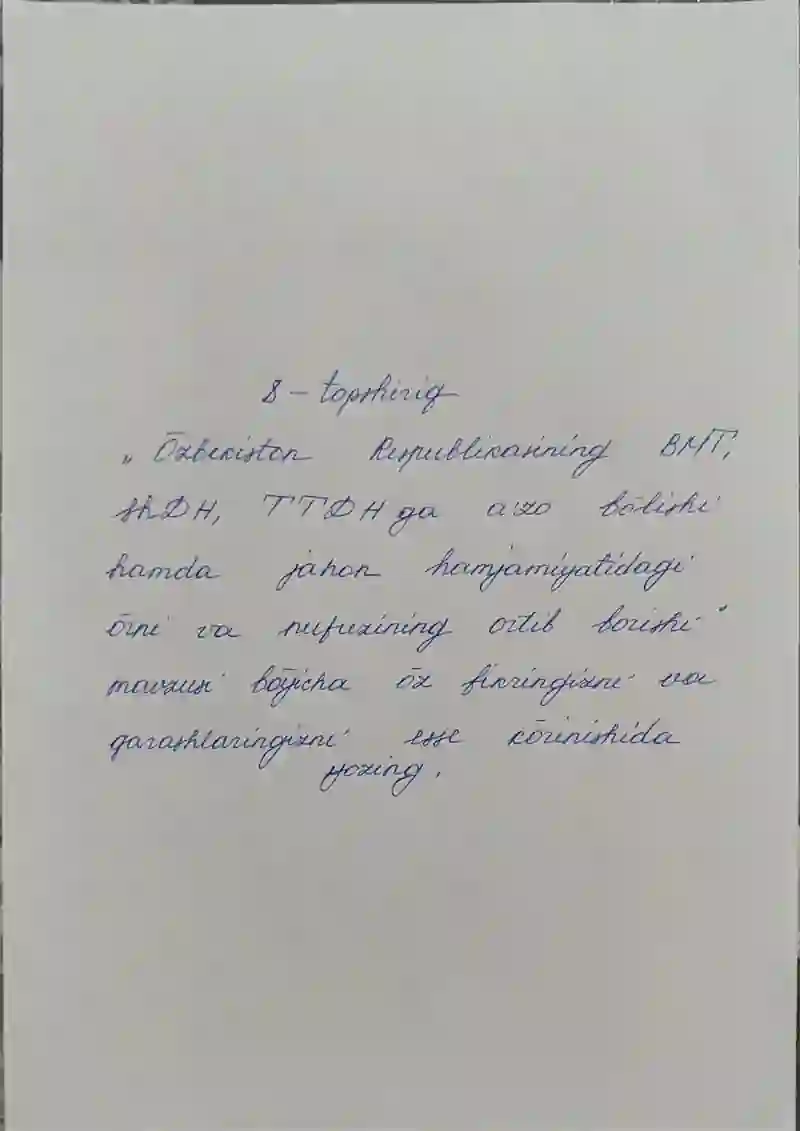 8 - topshiriq
„ Ōzbekiston Respublikasining BMT,
ShDH, TTDH ga a'zo bōlishi
hamda jahon hamjamiyatidagi
ōrni va nufuzining ortib borishi"
mavzusi bōyicha ōz fikringizni va
qarashlaringizni esse kōrinishida
yozing.